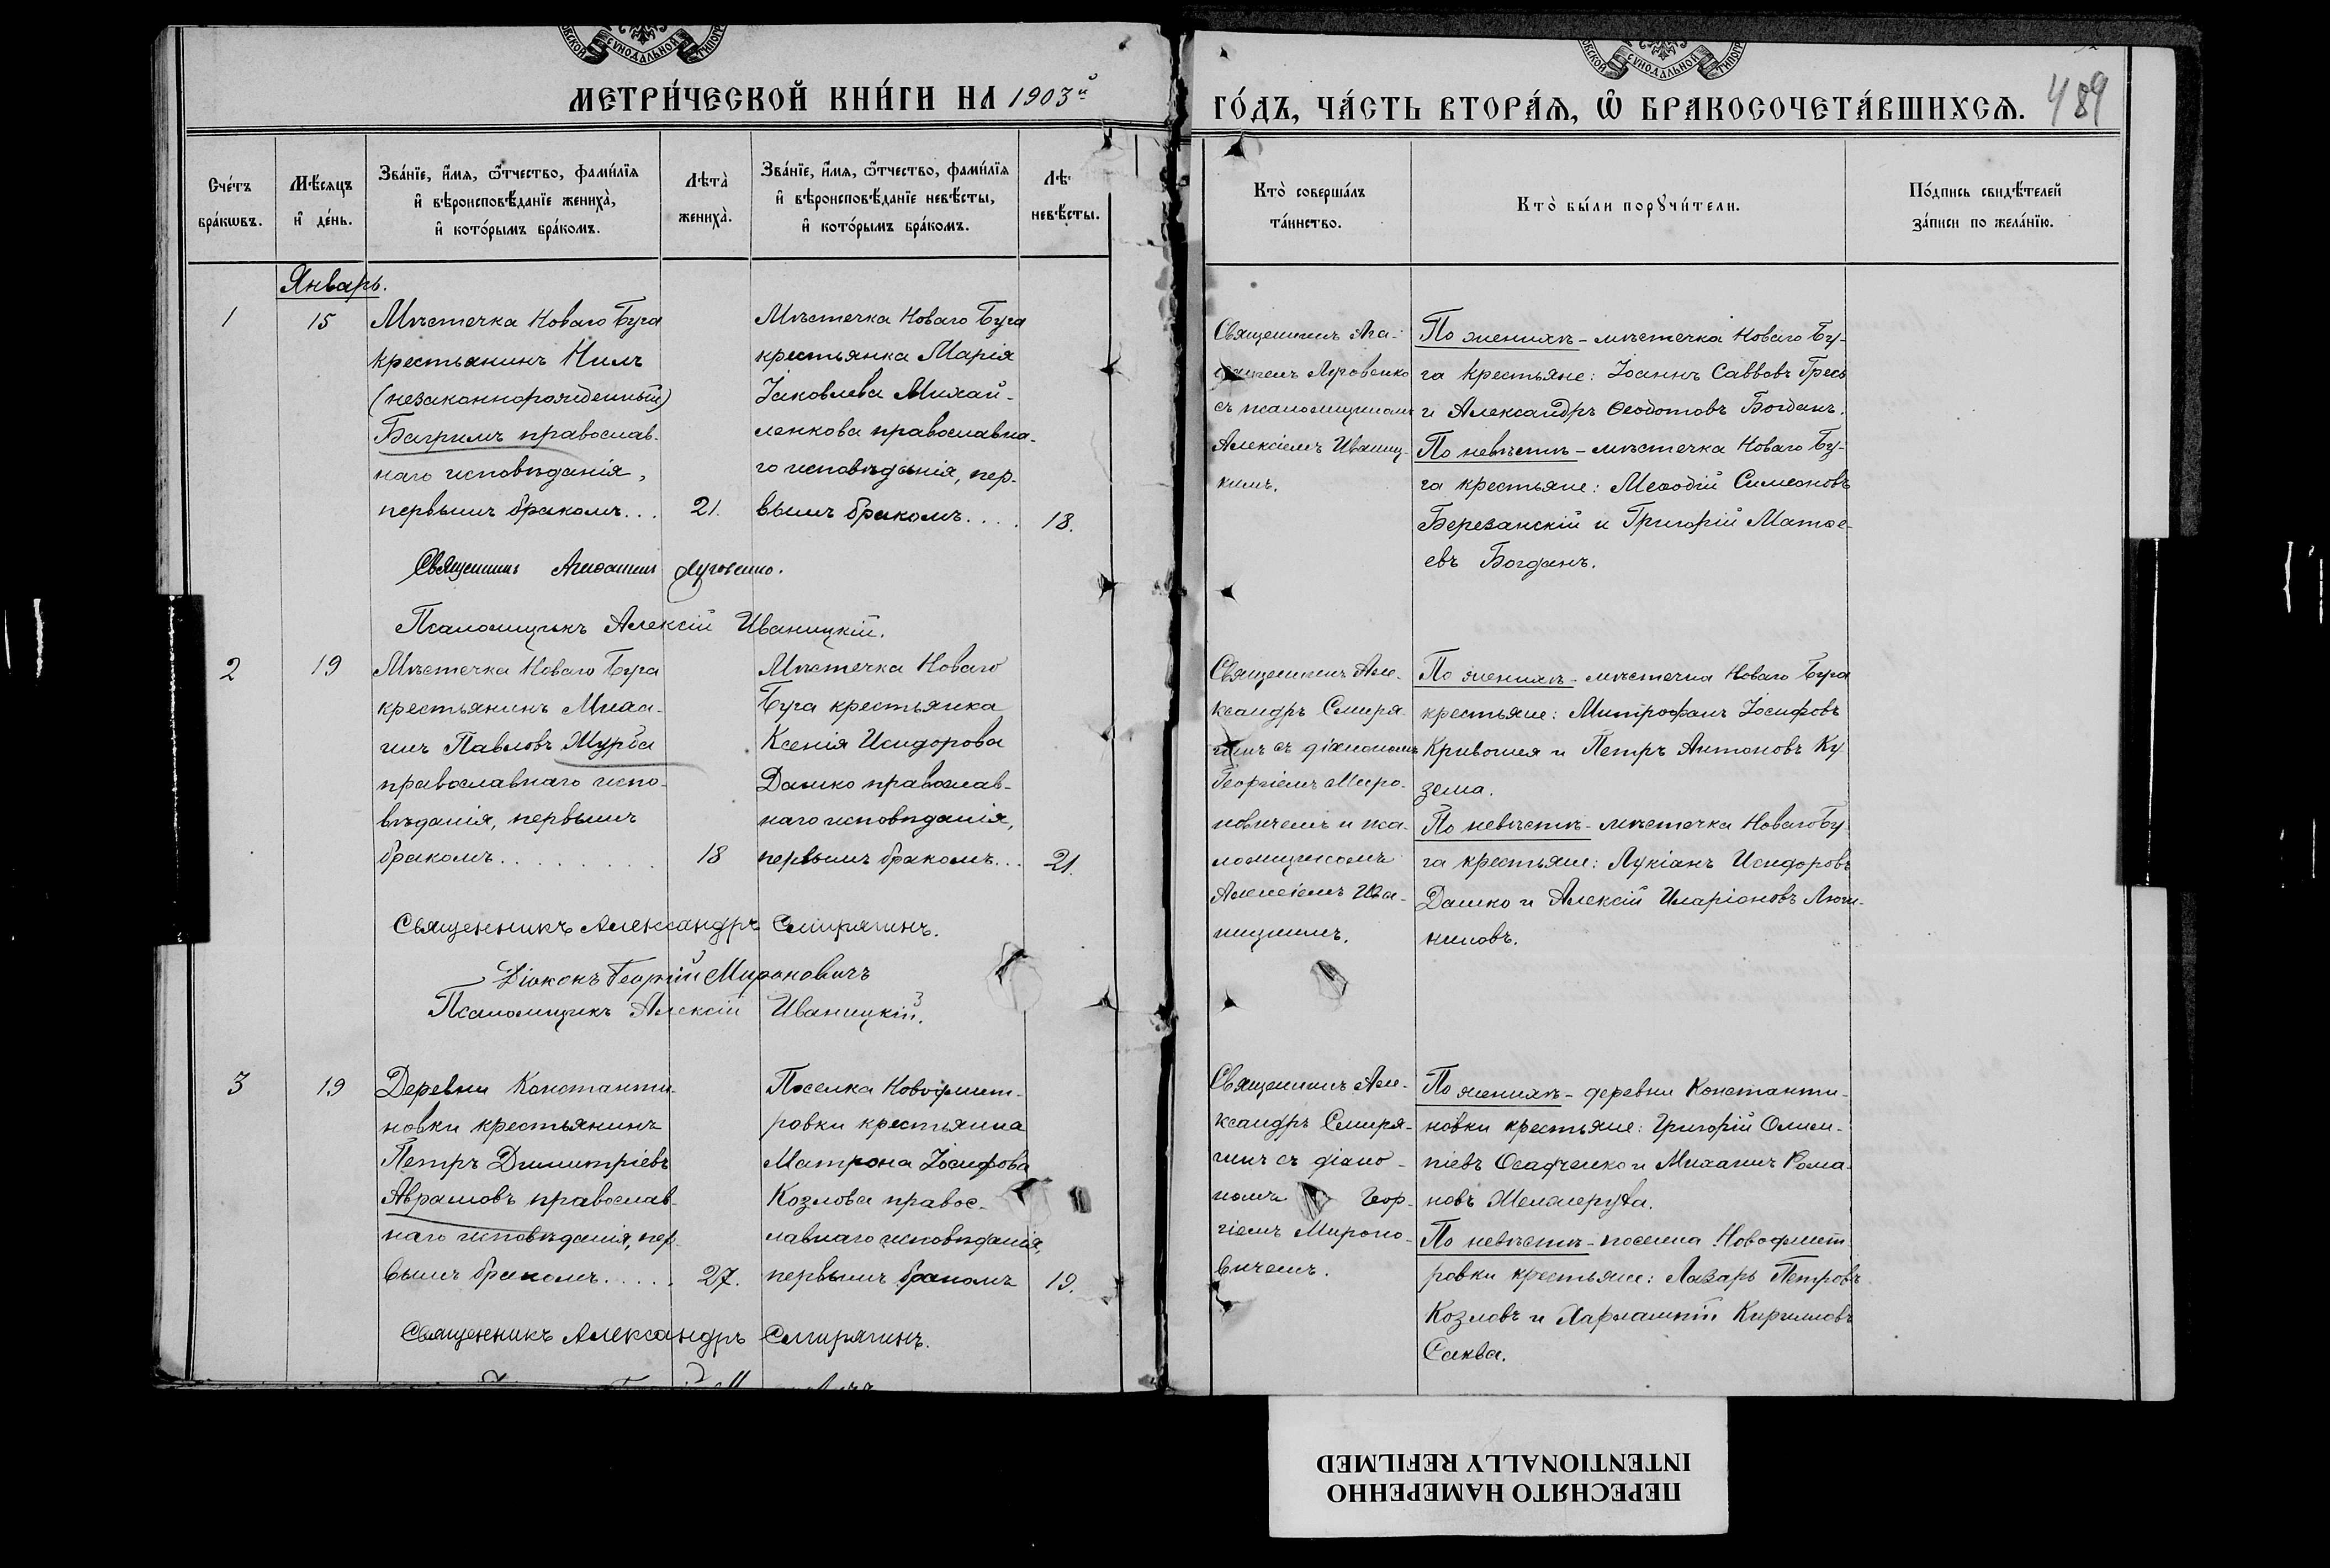 МЕТРИ́ЧЕСКОЙ КНИ́ГИ НА 1903й
ГО́ДЪ, ЧА́СТЬ ВТОРА́Я, Ѡ БРАКОСОЧЕТА́ВШИХСЯ.
489
Сче́тъ бра́кѡвъ.
Мѣ́сяцъ и де́нь.
Зва́нїе, и́мя, ѻ́тчество, фами́лїя и вѣроисповѣ́данїе жениха̀, и кото́рымъ бра́комъ.
Лѣта̀ жениха̀.
Зва́нїе, и́мя, ѻ́тчество, фами́лїя и вѣроисповѣ́данїе невѣ́сты, и кото́рымъ бра́комъ.
Лѣ- невѣ́сты.
Кто̀ соверша́лъ та́инство.
Кто̀ бы́ли порꙋчи́тели.
По́дпись свидѣ́телей за́писи по жела́нїю.
Январь.
1
15
Мѣстечка Новаго Буга
крестьянинъ Нилъ
(незаконнорожденный)
Багримъ православ-
наго исповѣданія,
первымъ бракомъ...
21.
Мѣстечка Новаго Буга
крестьянка Марія
Іаковлева Михай-
ленкова православна-
го исповѣданія, пер-
вымъ бракомъ....
18.
Священникъ Ага-
Луговенко
съ псаломщикомъ
Алексіемъ Иваниц-
кимъ.
По женихѣ - мѣстечка Новаго Бу-
га крестьяне: Іоаннъ Саввовъ Гресь
и Александръ Ѳеодотовъ Богданъ.
По невѣстѣ - мѣстечка Новаго Бу-
га крестьяне: Меѳодій Симеоновъ
Березанскій и Григорій Матѳе-
евъ Богданъ.
Священникъ Агаѳангелъ Луговенко.
Псаломщикъ Алексій Иваницкій.
2
19
Мѣстечка Новаго Буга
крестьянинъ Миха-
илъ Павловъ Журба
православнаго испо-
вѣданія, первымъ
бракомъ.........
18
Мѣстечка Новаго
Буга крестьянка
Ксенія Исидорова
Дашко православ-
наго исповѣданія,
первымъ бракомъ...
21.
Священникъ Але-
ксандръ Смиря-
гинъ съ діакономъ
Георгіемъ Миро-
новичемъ и пса-
ломщикомъ
Алексіемъ Ива-
ницкимъ.
По женихѣ - мѣстечка Новаго Буга
крестьяне: Митрофанъ Іосифовъ
Кривошея и Петръ Антоновъ Ку
зема.
По невѣстѣ - мѣстечка Новаго Бу-
га крестьяне: Лукіанъ Исидоровъ
Дашко и Алексій Иларіоновъ
Священникъ Александръ Смирягинъ.
Діаконъ Георгій Мироновичъ
Псаломщикъ Алексій Иваницкій.
3
19
Деревни Константи-
новки крестьянинъ
Петръ Димитріевъ
Аврамовъ православ-
наго исповѣданія, пер-
вымъ бракомъ.....
27.
Поселка Новодмит-
ровки крестьянка
Матрона Іосифова
Козлова правос-
лавнаго исповѣданія,
первымъ бракомъ
19.
Священникъ Але-
ксандръ Смиря-
гинъ съ діако-
номъ Геор-
гіемъ Мироно-
вичемъ.
По женихѣ - деревни Константи-
новки крестьяне: Григорій Олим-
піевъ Осадченко и Михаилъ Рома-
новъ
По невѣстѣ - поселка Новодмит
ровки крестьяне: Лазарь Петровъ
Козловъ и Харлампій Кирилловъ
Саква.
Священникъ Александръ Смирягинъ.
ПЕРЕСНЯТО НАМЕРЕННО
INTENTIONALLY REFILMED